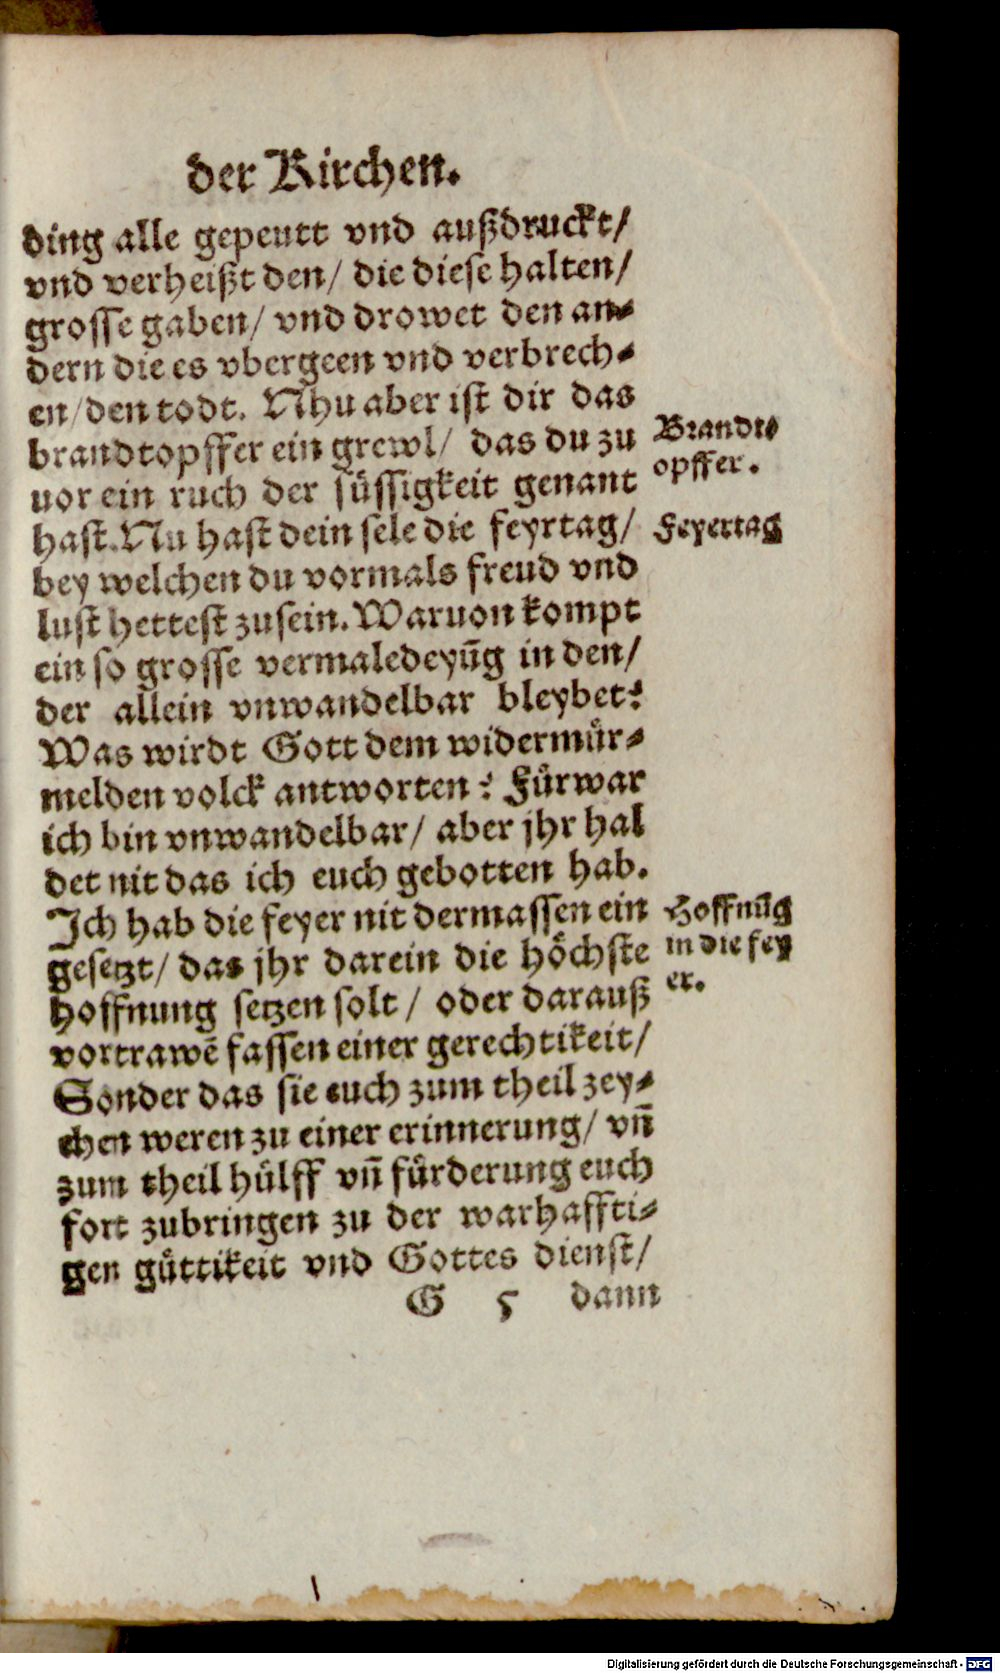 der Kirchen.
ding alle gepeutt vnd außdruckt/
vnd verheißt den/ die diese halten/
grosse gaben/ vnd drowet den an-
dern die es vbergeen vnd verbrech-
en/ den todt. Nhu aber ist dir das
brandtopffer ein grewl/ das du zu
uor ein ruch der süssigkeit genant
hast. Nu hast dein sele die feyrtag/
bey welchen du vormals freud vnd
lust hettest zusein. Waruon kompt
ein so grosse vermaledeyūg in den/
der allein vnwandelbar bleybet?
Was wirdt Gott dem widermür-
melden volck antworten? Fürwar
ich bin vnwandelbar/ aber jhr hal
det nit das ich euch gebotten hab.
Ich hab die feyer nit dermassen ein
gesetzt/ das jhr darein die höchste
hoffnung setzen solt/ oder darauß
vortrawē fassen einer gerechtikeit/
Sonder das sie euch zum theil zey-
chen weren zu einer erinnerung/ vn̄
zum theil hülff vn̄ fürderung euch
fort zubringen zu der warhaffti-
gen güttikeit vnd Gottes dienst/
G 5 dann
Brandt-
opffer.
Feyertag
Hoffnūg
in die fey
er.
Digitalisierung gefördert durch die Deutsche Forschungsgemeinschaft - DFG